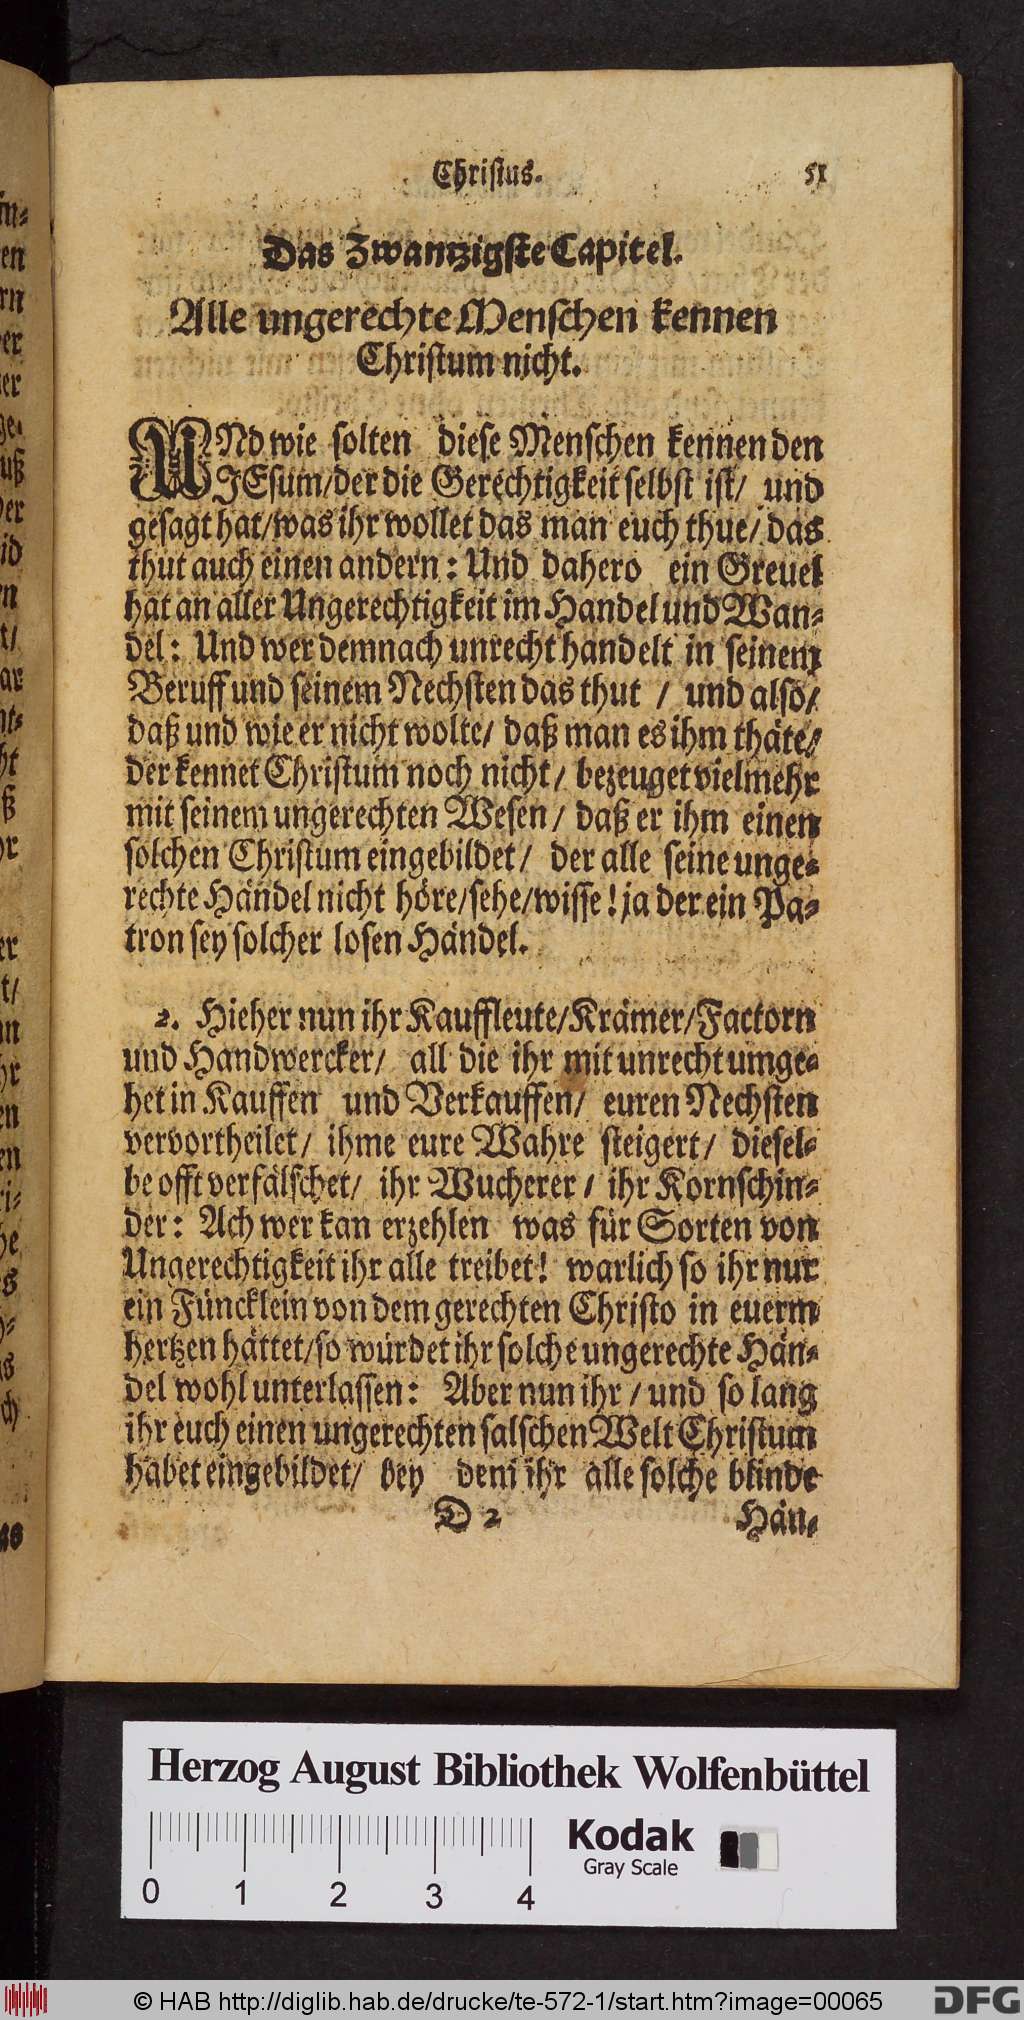 Christus. 51
Das Zwantzigste Capitel.
Alle ungerechte Menschen kennen
Christum nicht.
UNd wie solten diese Menschen kennen den
JEsum/der die Gerechtigkeit selbst ist/ und
gesagt hat/was ihr wollet das man euch thue/ das
thut auch einen andern: Und dahero ein Greuel
hat an aller Ungerechtigkeit im Handel und Wan-
del: Und wer demnach unrecht handelt in seinem
Beruff und seinem Nechsten das thut / und also/
daß und wie er nicht wolte/ daß man es ihm thäte/
der kennet Christum noch nicht/ bezeuget vielmehr
mit seinem ungerechten Wesen/ daß er ihm einen
solchen Christum eingebildet/ der alle seine unge-
rechte Händel nicht höre/sehe/wisse! ja der ein Pa-
tron sey solcher losen Händel.
2. Hieher nun ihr Kauffleute/Krämer/Factorn
und Handwercker/ all die ihr mit unrecht umge-
het in Kauffen und Verkauffen/ euren Nechsten
vervortheilet/ ihme eure Wahre steigert/ diesel-
be offt verfälschet/ ihr Wucherer/ ihr Kornschin-
der: Ach wer kan erzehlen was für Sorten von
Ungerechtigkeit ihr alle treibet! warlich so ihr nur
ein Füncklein von dem gerechten Christo in euerm
hertzen hättet/so würdet ihr solche ungerechte Hän-
del wohl unterlassen: Aber nun ihr/und so lang
ihr euch einen ungerechten falschen Welt Christum
habet eingebildet/ bey dem ihr alle solche blinde
D 2 Hän-
Herzog August Bibliothek Wolfenbüttel
0 1 2 3 4
Kodak
Gray Scale
© HAB http://diglib.hab.de/drucke/te-572-1/start.htm?image=00065
DFG